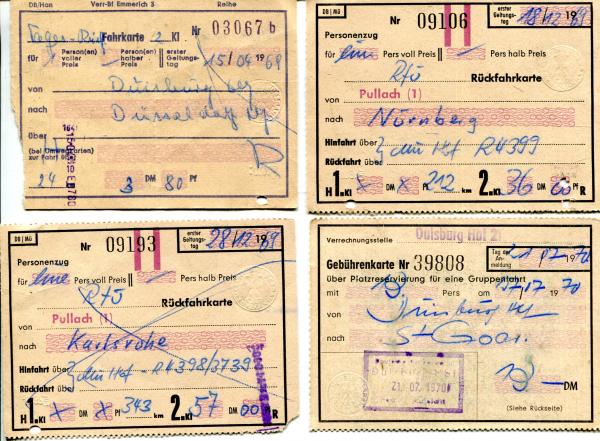 DB/Han Verr-Bf Emmerich 3 Reihe
Fahrkarte 2 Kl Nr 03067 b
für Person(en) voller Preis Person(en) halber Preis erster Geltungstag 15/04 1969
von Duisburg Hbf
nach Düsseldorf Hbf
über
(bei Umwegkarten) zur Fahrt über
24 3 DM 80 Pf
DB | Mü Nr 09106 erster Geltungstag 18/12 1969
Personenzug
für eine Pers voll Preis Pers halb Preis
Rfü Rückfahrkarte
von Pullach (1)
nach Nürnberg
Hinfahrt über Mü Hbf R4399
Rückfahrt über
H 1. Kl x DM x Pf 212 km 2. Kl 36 DM 00 Pf R
DB | Mü Nr 09193 erster Geltungstag 28/12 1969
Personenzug
für eine Pers voll Preis Pers halb Preis
Rfü Rückfahrkarte
von Pullach (1)
nach Karlsruhe
Hinfahrt über Mü Hbf - R4398/3739
Rückfahrt über
H 1. Kl x DM x Pf 343 km 2. Kl 57 DM 00 R
Verrechnungsstelle Duisburg Hbf 2
Gebührenkarte Nr 39808 Tag der Anmeldung 21/07 1970
über Platzreservierung für eine Gruppenfahrt
mit Pers am 17/17 1970
von Duisburg Hbf
nach St Goar
21. 07. 1970
DM
(Siehe Rückseite)